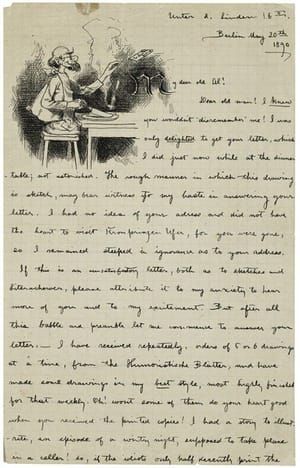 Unter d. Linden 16 III.
Berlin May 20th
1890
My dear old Al!
Dear old man! I knew
you wouldn't disremember me! I was
only delighted to get your letter, which
I did just now while at the dinner
table; not astonished. The rough manner in which this drawing
is sketch, may bear witness to my haste in answering your
letter. I had no idea of your adress and did not have
the heart to visit Kronprinzen Ufer, for you were gone,
so I remained steeped in ignorance as to your address.
If this is an unsatisfactory letter, both as to sketches and
please attribute it to my anxiety to hear
more of you and to my excitement. But after all
this babble and preamble let me commence to answer your
letter.— I have received repeatedly, oders of 5 or 6 drawings
at a time, from the Humoristische Blätter, and have
made some drawings in my best style, most highly finished
for that weekly. Oh! wont some of them do your heart good
when you received the printed copies! I had a story to illust-
rate, an episode of a wintry night, supposed to take place
in a celler! so, if the idiots only half decently print the